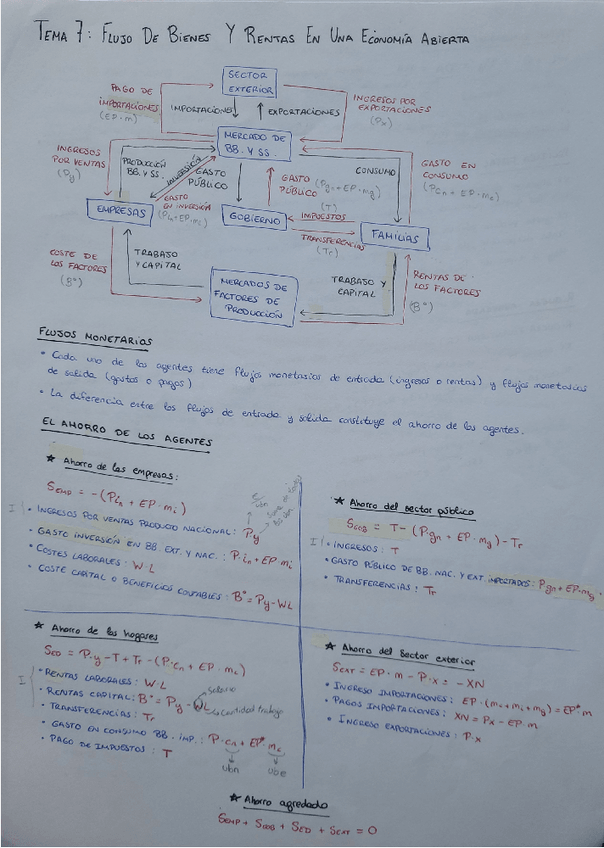 TEMA 7: FLUJO DE BIENES Y RENTAS EN UNA ECONOMÍA ABIERTA
SECTOR EXTERIOR
PAGO DE IMPORTACIONES (EP·m)
IMPORTACIONES
EXPORTACIONES
INGRESOS POR EXPORTACIONES (Px)
MERCADO DE BB. Y SS.
INGRESOS POR VENTAS (Py)
PRODUCCIÓN BB. Y SS.
INVERSIÓN
GASTO EN INVERSIÓN (Pin + EP·mi)
GASTO PÚBLICO
GASTO PÚBLICO (Pgn + EP·mg)
CONSUMO
GASTO EN CONSUMO (Pcn + EP·mc)
EMPRESAS
GOBIERNO
(T)
IMPUESTOS
TRANSFERENCIAS (Tr)
FAMILIAS
COSTE DE LOS FACTORES (Bº)
TRABAJO Y CAPITAL
MERCADOS DE FACTORES DE PRODUCCIÓN
TRABAJO Y CAPITAL
RENTAS DE LOS FACTORES (Bº)
FLUJOS MONETARIOS
• Cada uno de los agentes tiene flujos monetarios de entrada (ingresos o rentas) y flujos monetarios
de salida (gastos o pagos)
• La diferencia entre los flujos de entrada y salida constituye el ahorro de los agentes.
EL AHORRO DE LOS AGENTES
★ Ahorro de las empresas:
SEMP = -(Pin + EP·mi)
• INGRESOS POR VENTAS PRODUCTO NACIONAL: P·y
• GASTO INVERSIÓN EN BB. EXT. Y NAC.: P·in + EP·mi
• COSTES LABORALES: W·L
• COSTE CAPITAL O BENEFICIOS CONTABLES: Bº = Py - WL
★ Ahorro del sector público
SGOB = T - (P·gn + EP·mg) - Tr
• INGRESOS: T
• GASTO PÚBLICO DE BB. NAC. Y EXT. IMPORTADOS: P·gn + EP·mg
• TRANSFERENCIAS: Tr
★ Ahorro de los hogares
SED = P·y - T + Tr - (P·cn + EP·mc)
• RENTAS LABORALES: W·L
• RENTAS CAPITAL: Bº = Py - WL
Salario
Cantidad trabajo
• TRANSFERENCIAS: Tr
• GASTO EN CONSUMO BB. IMP.: P·cn + EP·mc
ubn
ube
• PAGO DE IMPUESTOS: T
★ Ahorro del Sector exterior
SEXT = EP·m - P·x = -XN
• INGRESO IMPORTACIONES: EP·(mc+mi+mg) = EP·m
• PAGOS IMPORTACIONES: XN = Px - EP·m
• INGRESO EXPORTACIONES: P·x
★ Ahorro agregado
SEMP + SGOB + SED + SEXT = 0